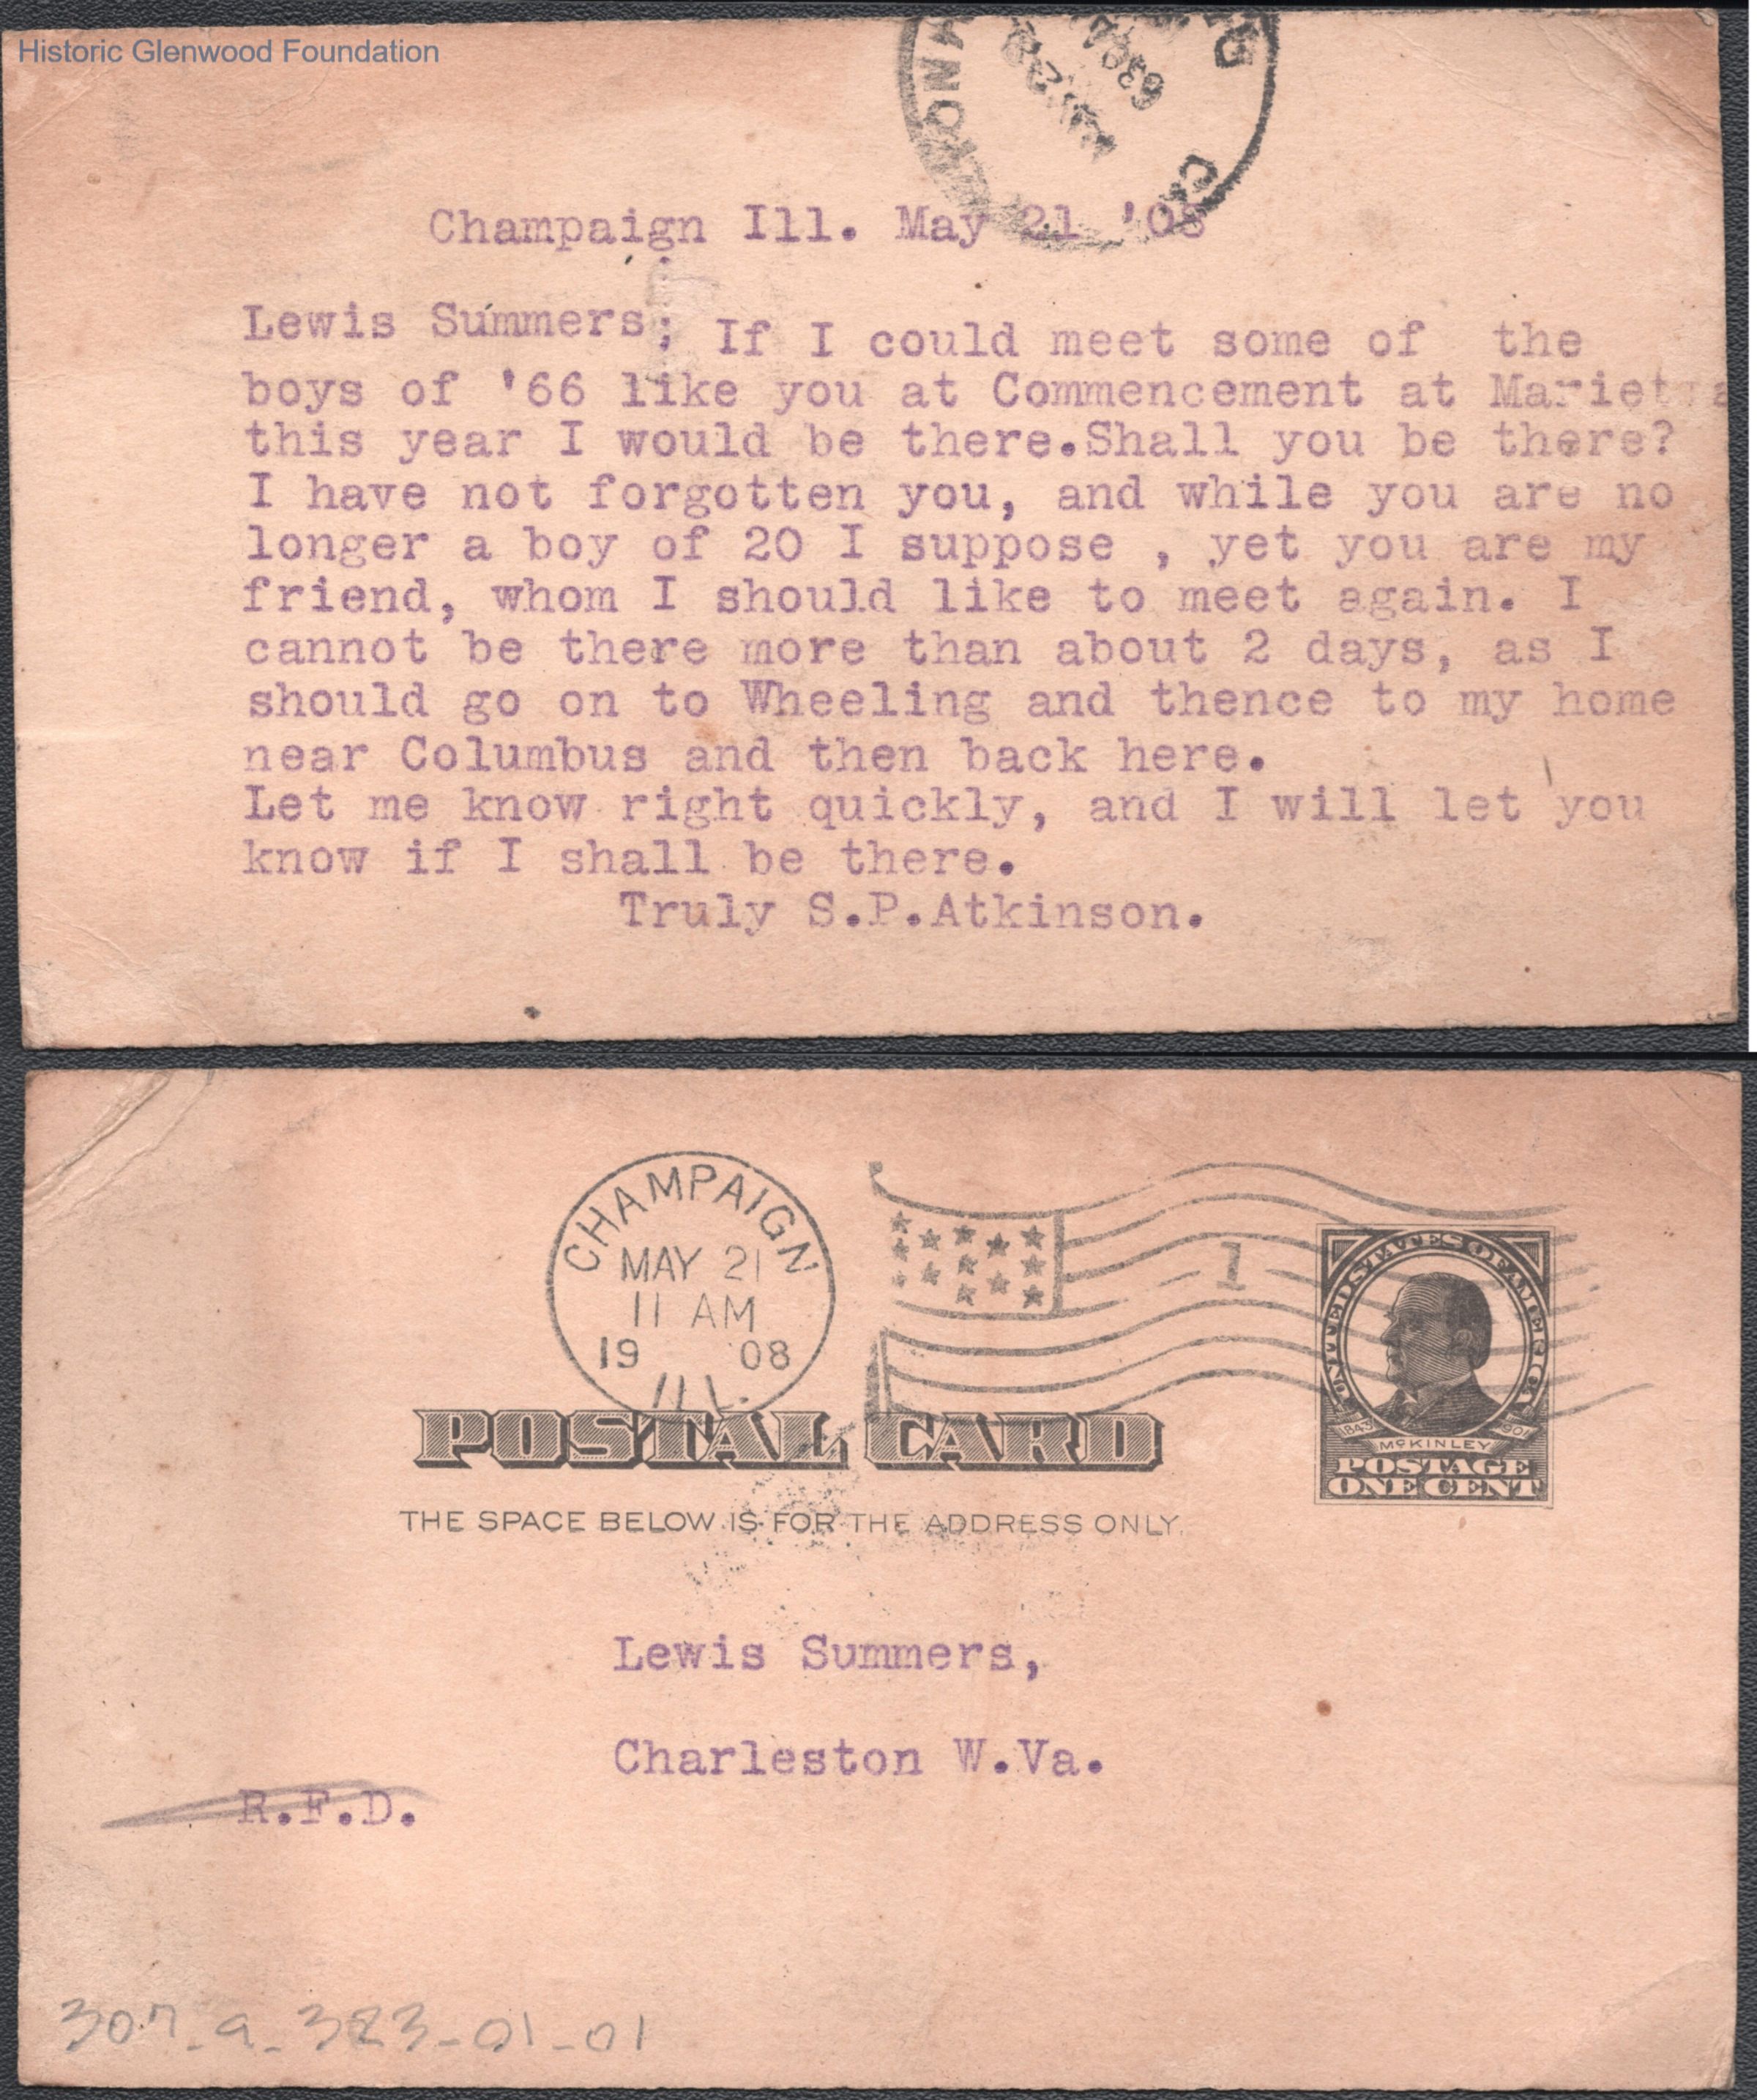 Historic Glenwood Foundation
Champaign Ill. May 21 '08
Lewis Summers; If I could meet some of the
boys of '66 like you at Commencement at Marietta
this year I would be there.Shall you be there?
I have not forgotten you, and while you are no
longer a boy of 20 I suppose , yet you are my
friend, whom I should like to meet again. I
cannot be there more than about 2 days, as I
should go on to Wheeling and thence to my home
near Columbus and then back here.
Let me know right quickly, and I will let you
know if I shall be there.
Truly S.P.Atkinson.
CHAMPAIGN
MAY 21
11 AM
19 08
ILL.
1
UNITED STATES OF AMERICA
1843 1901
McKINLEY
POSTAGE
ONE CENT
POSTAL CARD
THE SPACE BELOW IS FOR THE ADDRESS ONLY.
Lewis Summers,
Charleston W.Va.
R.F.D.
307-a-323-01-01